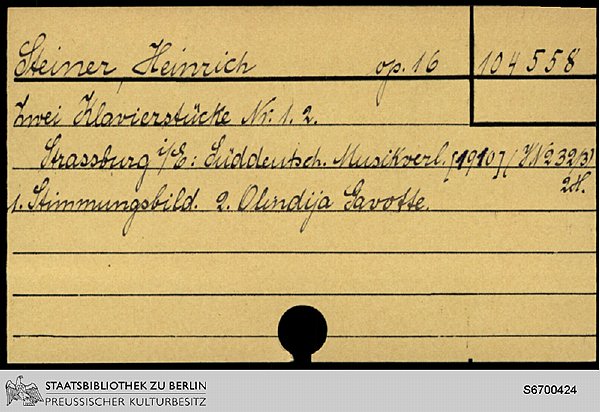 Steiner, Heinrich op. 16 104558
Zwei Klavierstücke Nr. 1. 2.
Strassburg i/E: Süddeutsch. Musikverl. [1910] (VN 232/3)
2 H.
1. Stimmungsbild. 2. Olendija Gavotte.
STAATSBIBLIOTHEK ZU BERLIN
PREUSSISCHER KULTURBESITZ
S6700424